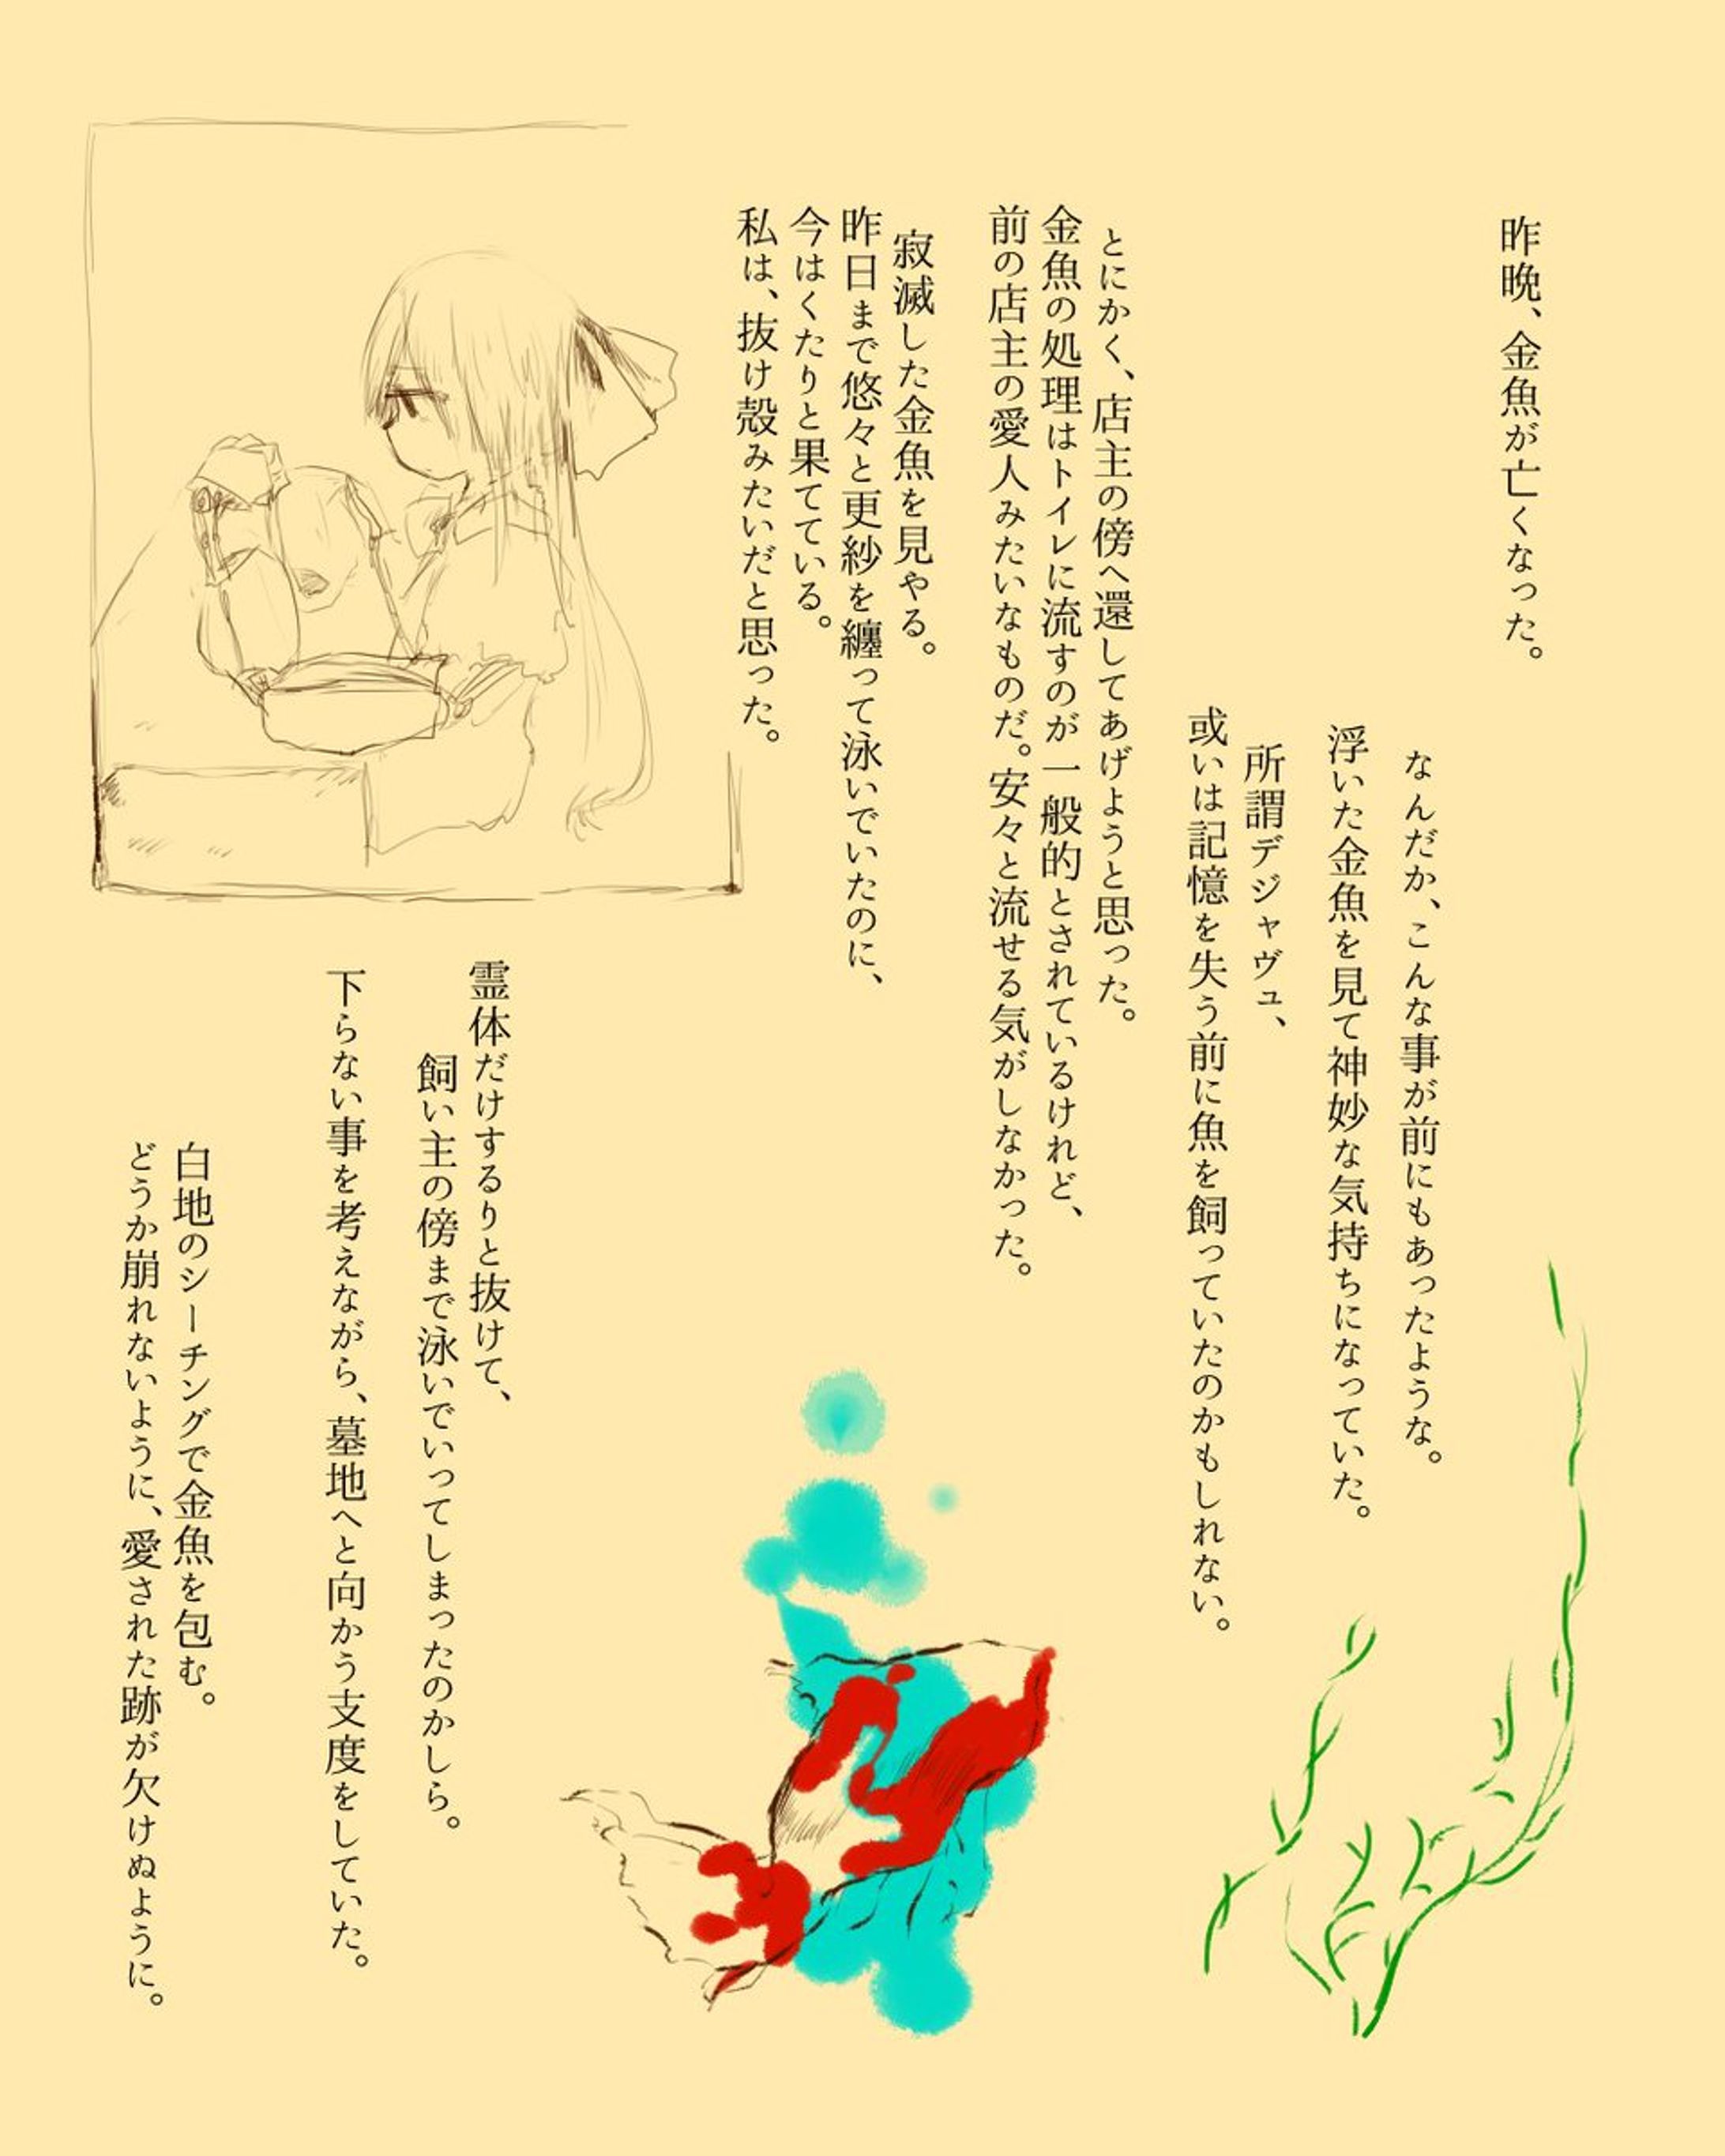 昨晩、金魚が亡くなった。
なんだか、こんな事が前にもあったような。
浮いた金魚を見て神妙な気持ちになっていた。
所謂デジャヴュ、
或いは記憶を失う前に魚を飼っていたのかもしれない。
とにかく、店主の傍へ還してあげようと思った。
金魚の処理はトイレに流すのが一般的とされているけれど、
前の店主の愛人みたいなものだ。安々と流せる気がしなかった。
寂滅した金魚を見やる。
昨日まで悠々と更紗を纏って泳いでいたのに、
今はくたりと果てている。
私は、抜け殻みたいだと思った。
霊体だけするりと抜けて、
飼い主の傍まで泳いでいってしまったのかしら。
下らない事を考えながら、墓地へと向かう支度をしていた。
白地のシーチングで金魚を包む。
どうか崩れないように、愛された跡が欠けぬように。